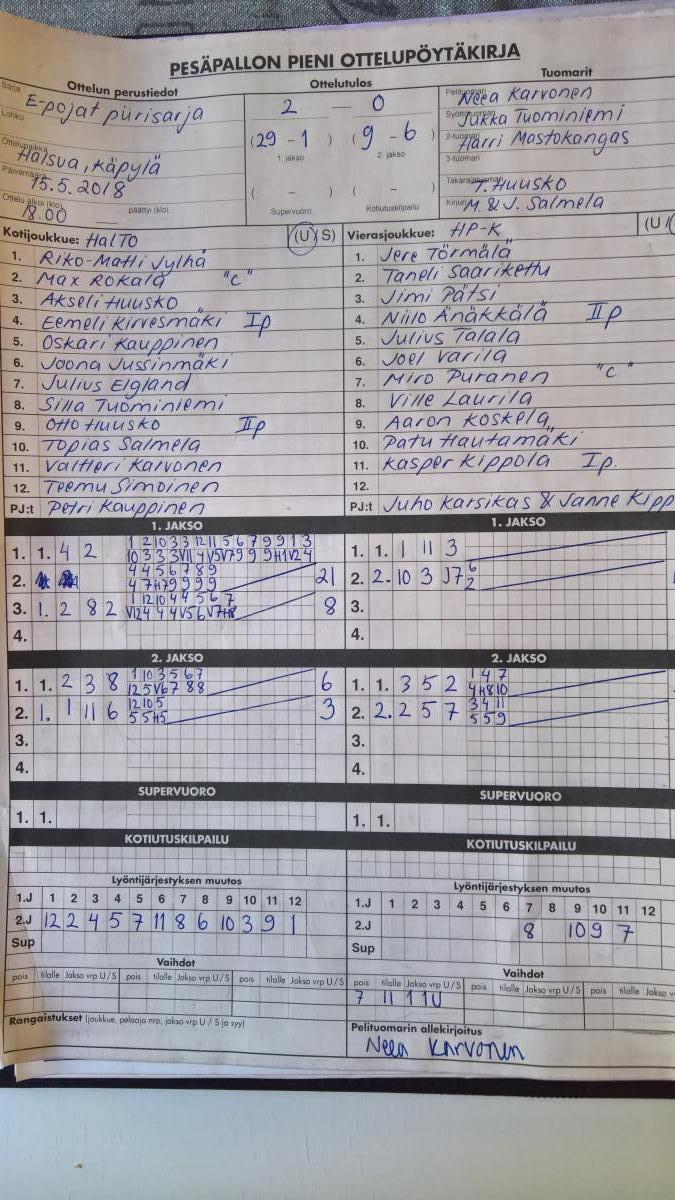 PESÄPALLON PIENI OTTELUPÖYTÄKIRJA
Ottelun perustiedot
Sarja
E-pojat piirisarja
Lohko
Ottelupaikka
Halsua, Käpylä
Päivämäärä
15.5.2018
Ottelu alkoi (klo)
18.00
päättyi (klo)
Ottelutulos
2 — 0
(29 - 1) (9 - 6)
1. jakso 2. jakso
( - ) ( - )
Supervuoro Kotiutuskilpailu
Tuomarit
Pelituomari
Neea Karvonen
Jukka Tuominiemi
2-tuomari
Harri Mastokangas
3-tuomari
Takarajatuomari
T. Huusko
M. & J. Salmela
Kotijoukkue: HalTo (U / S)
1. Riko-Matti Jylhä
2. Max Rokala "C"
3. Akseli Huusko
4. Eemeli Kirvesmäki Ip
5. Oskari Kauppinen
6. Joona Jussinmäki
7. Julius Elgland
8. Silla Tuominiemi
9. Otto Huusko IIp
10. Topias Salmela
11. Valtteri Karvonen
12. Teemu Simoinen
PJ:t Petri Kauppinen
Vierasjoukkue: HP-K (U /
1. Jere Törmälä
2. Taneli Saarikettu
3. Jimi Pätsi
4. Niilo Änäkkälä IIp
5. Julius Talala
6. Joel Varila
7. Miro Puranen "C"
8. Ville Laurila
9. Aaron Koskela
10. Patu Hautamäki
11. Kasper Kippola Ip.
12.
PJ:t Juho Karsikas & Janne Kipp
1. JAKSO
1. 1. 4 2 1 2 10 3 3 12 11 5 6 7 9 9 1 3
10 3 3 3 V11 4 V5 V7 9 9 9 H1 V2 4
2. 4 4 5 6 7 8 9
4 7 H7 9 9 9 9 21
3. 1. 2 8 2 1 12 10 4 4 5 6 7
V12 4 4 4 V5 6 V7 H8 8
4.
1. JAKSO
1. 1. 1 11 3
2. 2. 10 3 J7 6
2
3.
4.
2. JAKSO
1. 1. 2 3 8 1 10 3 5 6 7
12 5 V6 7 8 8 6
2. 1. 1 11 6 12 10 5
5 5 H5 3
3.
4.
2. JAKSO
1. 1. 3 5 2 1 4 7
4 H8 10
2. 2. 2 5 7 3 4 11
5 5 9
3.
4.
SUPERVUORO
1. 1.
SUPERVUORO
1. 1.
KOTIUTUSKILPAILU
KOTIUTUSKILPAILU
Lyöntijärjestyksen muutos
1.J 1 2 3 4 5 6 7 8 9 10 11 12
2.J 12 2 4 5 7 11 8 6 10 3 9 1
Sup
Lyöntijärjestyksen muutos
1.J 1 2 3 4 5 6 7 8 9 10 11 12
2.J 8 10 9 7
Sup
Vaihdot
pois tilalle Jakso vrp U / S pois tilalle Jakso vrp U / S pois tilalle Jakso vrp U / S
Rangaistukset (joukkue, pelaaja nro, jakso vrp U / S ja syy)
Vaihdot
pois tilalle Jakso vrp U / S pois tilalle Jakso vrp U / S pois tilalle Jakso
7 11 1 1U
Pelituomarin allekirjoitus
Neea Karvonen